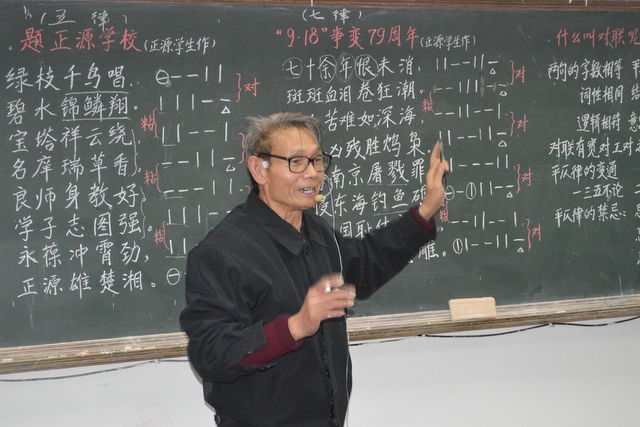 (五律)
题正源学校(正源学生作)
绿枝千鸟唱,
碧水锦鳞翔。
宝塔祥云绕,
名庠瑞草香。
良师身教好,
学子志图强。
永葆冲霄劲,
正源雄楚湘。
对
粘
对
粘
对
粘
对
(七律)
“9·18”事变79周年(正源学生作)
七十余年恨未消,
斑斑血泪卷狂潮。
苦难如深海
为残胜鸩枭。
南京屠戮罪
东海钓鱼
国耻
雕。
对
粘
对
对
对
什么叫对联呢
两句的字数相等
词性相同
逻辑相符
对联有宽对工对
平仄律的变通
一三五不论
平仄律的禁忌: